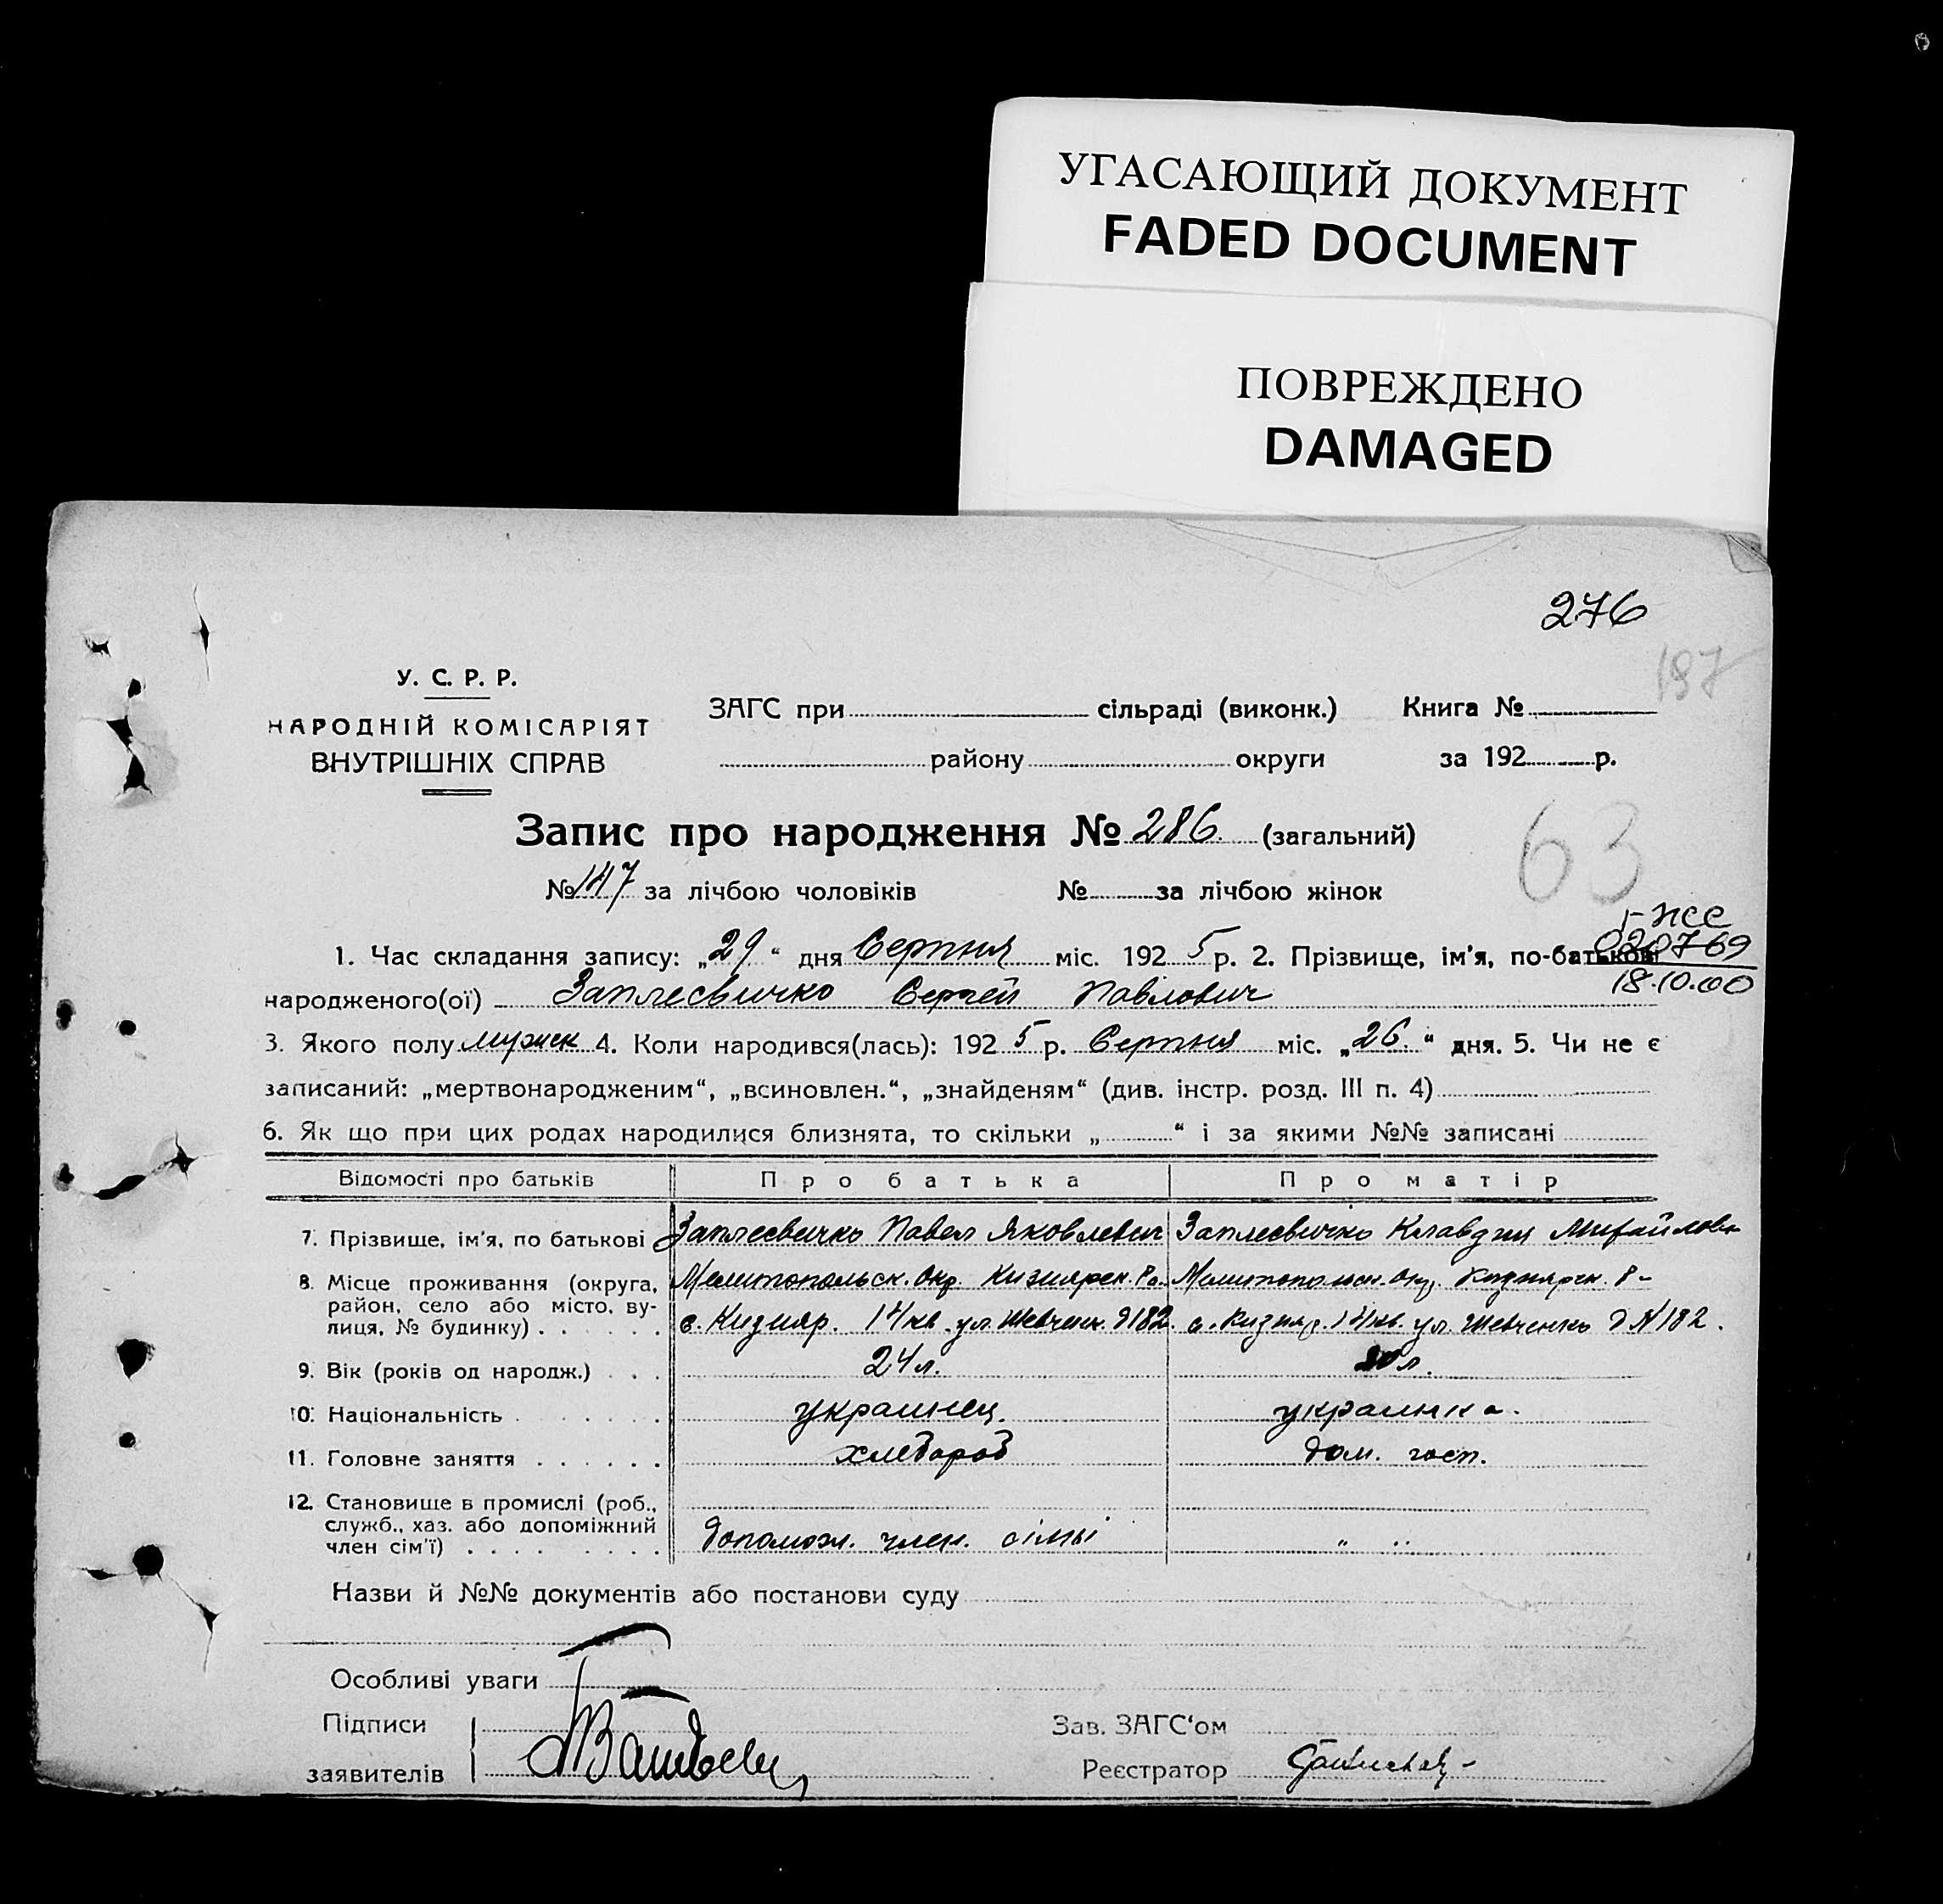 УГАСАЮЩИЙ ДОКУМЕНТ
FADED DOCUMENT
ПОВРЕЖДЕНО
DAMAGED
276
187
У. С. Р. Р.
НАРОДНІЙ КОМІСАРІЯТ
ВНУТРІШНІХ СПРАВ
ЗАГС при сільраді (виконк.) Книга №
району округи за 192 р.
Запис про народження № 286. (загальний)
63
№ 147 за лічбою чоловіків № за лічбою жінок
020769
18.10.00
1. Час складання запису: „29" дня Серпня міс. 1925 р. 2. Прізвище, ім'я, по-батькові
народженого(ої) Заплесвичко Сергей Павлович
3. Якого полу мужск 4. Коли народився(лась): 1925 р. Серпня міс. „26." дня. 5. Чи не є
записаний: „мертвонародженим", „всиновлен.", „знайденям" (див. інстр. розд. III п. 4)
6. Як що при цих родах народилися близнята, то скільки „ " і за якими №№ записані
Відомості про батьків Про батька Про матір
7. Прізвище, ім'я, по батькові Заплесвичко Павел Яковлевич Заплесвичко Клавдия Михайлова
8. Місце проживання (округа, Мелитопольск. Окр. Кизиярск. Ра. Мелитопольск. Окр. Кизиярск. Р-
район, село або місто, ву-
лиця, № будинку) с. Кизияр. 14 кв. ул. Шевченк. д 182. с. Кизияр. 14 кв. ул. Шевченко д № 182.
9. Вік (років од народж.) 24 л. 20 л.
10. Національність украинец. украинка.
11. Головне заняття хлебороб дом. госп.
12. Становище в промислі (роб.,
служб., хаз. або допоміжний
член сім'ї) допомож. член. сімьі " "
Назви й №№ документів або постанови суду
Особливі уваги
Підписи Зав. ЗАГС'ом
заявителів Реєстратор